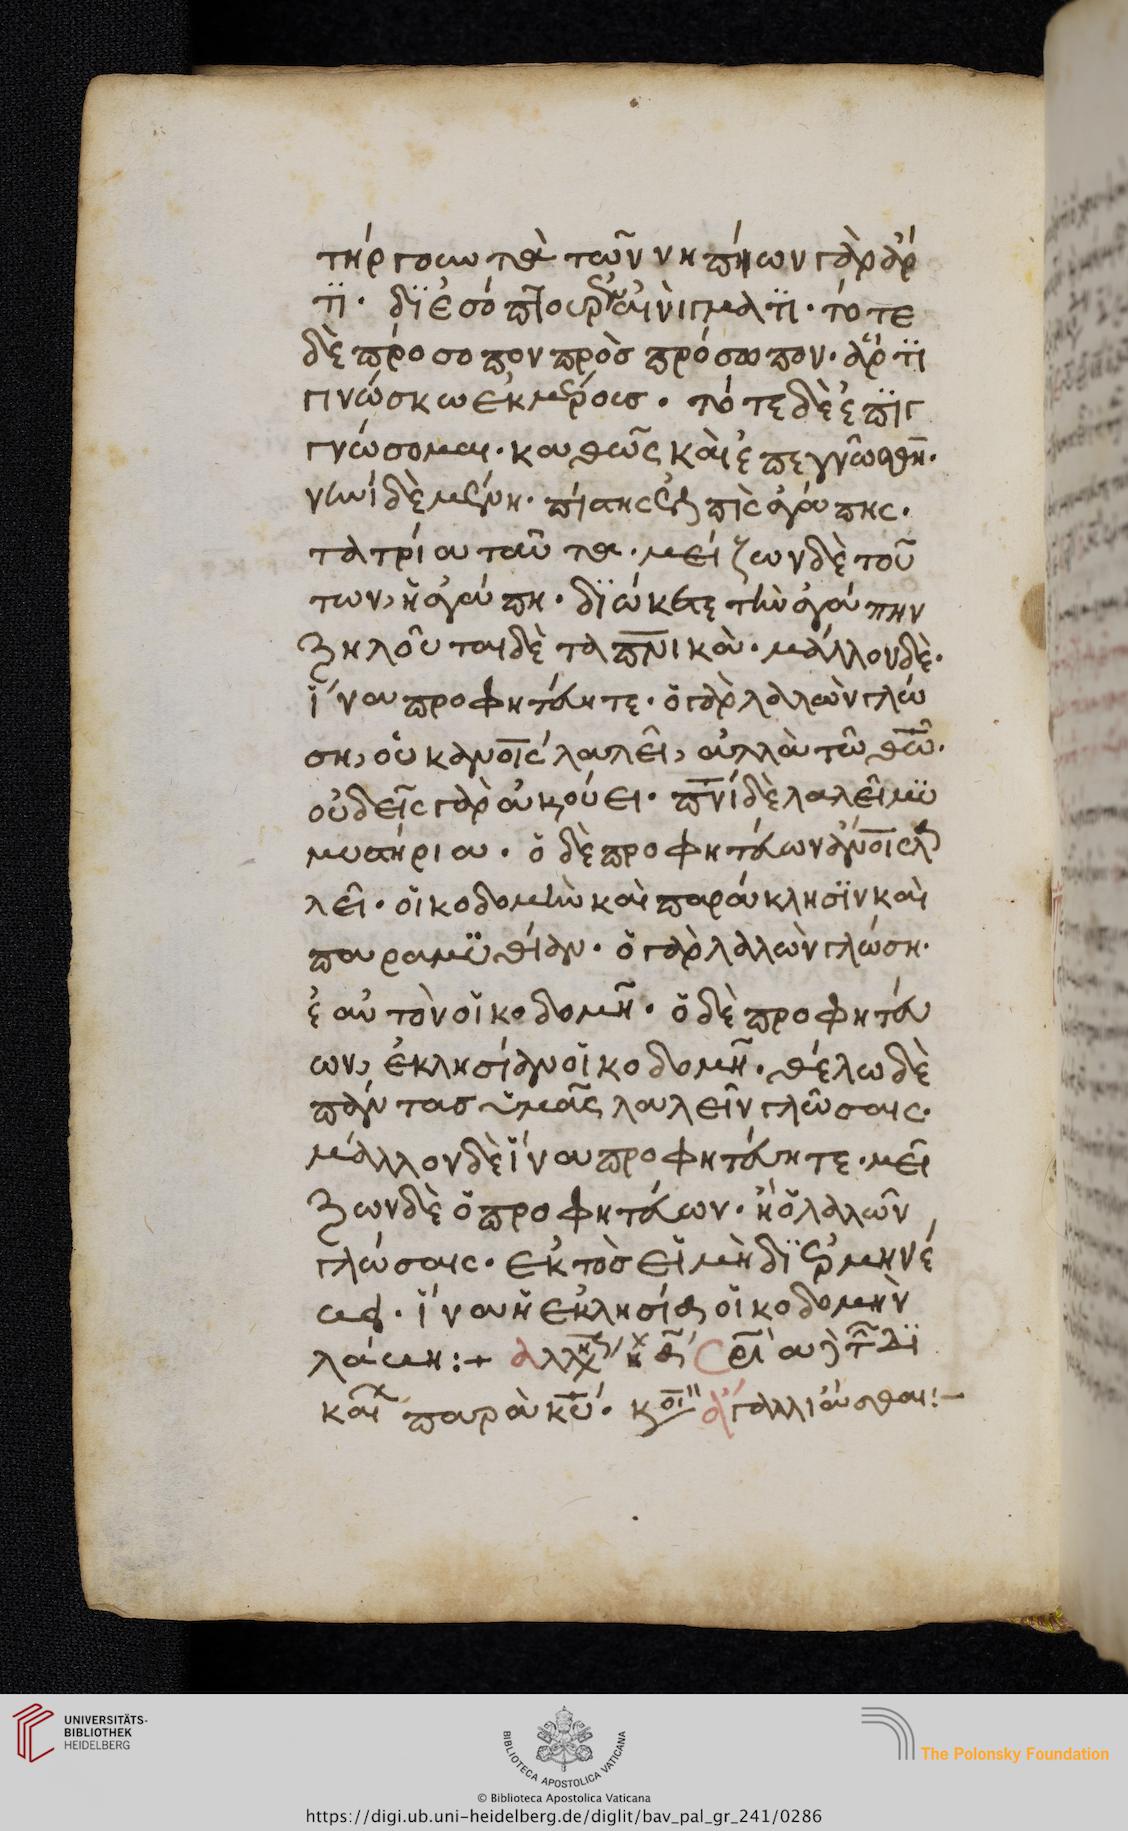 τήργοωτθὰ τῶν νηπήων γὰρ ἄρ
τϊ· δϊ ἐσόπτρου ἐν αἰνὶγματϊ· τότε
δὲ πρόσοπον πρὸσ πρόσωπον· ἄρτϊ
γινώσκω ἐκ μέρόυσ· τότε δὲ ἐπϊγ
γνώσομαι· καθῶς καὶ ἐπεγνῶσθην·
νυνί δὲ μένη· πίστης ἐλπὶς ἀγάπης·
τα τρία ταῦτα· μείζων δὲ τοῦ
των, ἡ ἀγάπη· διώκετε τὴν ἀγάπην
ζηλοῦται δὲ τα πνικὰ· μάλλον δὲ·
ἵνα προφητέυητε· ὁ γὰρ λαλὼν γλώ
ση, οὐκ ἀνοις λαλεῖ, ἀλλὰ τῶ θῶ·
οὐδεῖς γὰρ ἀκούει· πνί δὲ λαλεῖ μϋ
μυστήρια· ὁ δὲ προφητέυων ἀνοις λα
λεῖ· οἰκοδομὴν καὶ παράκλησϊν καὶ
παραμϋθίαν· ὁ γὰρ λαλὼν γλώση·
ἐαυτὸν οἰκοδομῆ· ὁ δὲ προφητέυ
ων, ἐκλησίαν οἰκοδομῆ· θέλω δὲ
πάντασ ὑμᾶς λαλεῖν γλῶσαις·
μάλλον δὲ ἵνα προφητέυητε· μεῖ
ζων δὲ ὁ προφητέυων· ἠ ὁ λαλῶν
γλώσαις· ἐκτὸσ εἰ μὴ δϊερμηνέ
υει· ἵνα ἡ ἐκλησία οἰκοδομὴν
λάβη:+
καὶ παρὰ κυ· κοι ἀγαλλιάσθαι:–
UNIVERSITÄTS-
BIBLIOTHEK
HEIDELBERG
BIBLIOTECA APOSTOLICA VATICANA
The Polonsky Foundation
© Biblioteca Apostolica Vaticana
https://digi.ub.uni-heidelberg.de/diglit/bav_pal_gr_241/0286